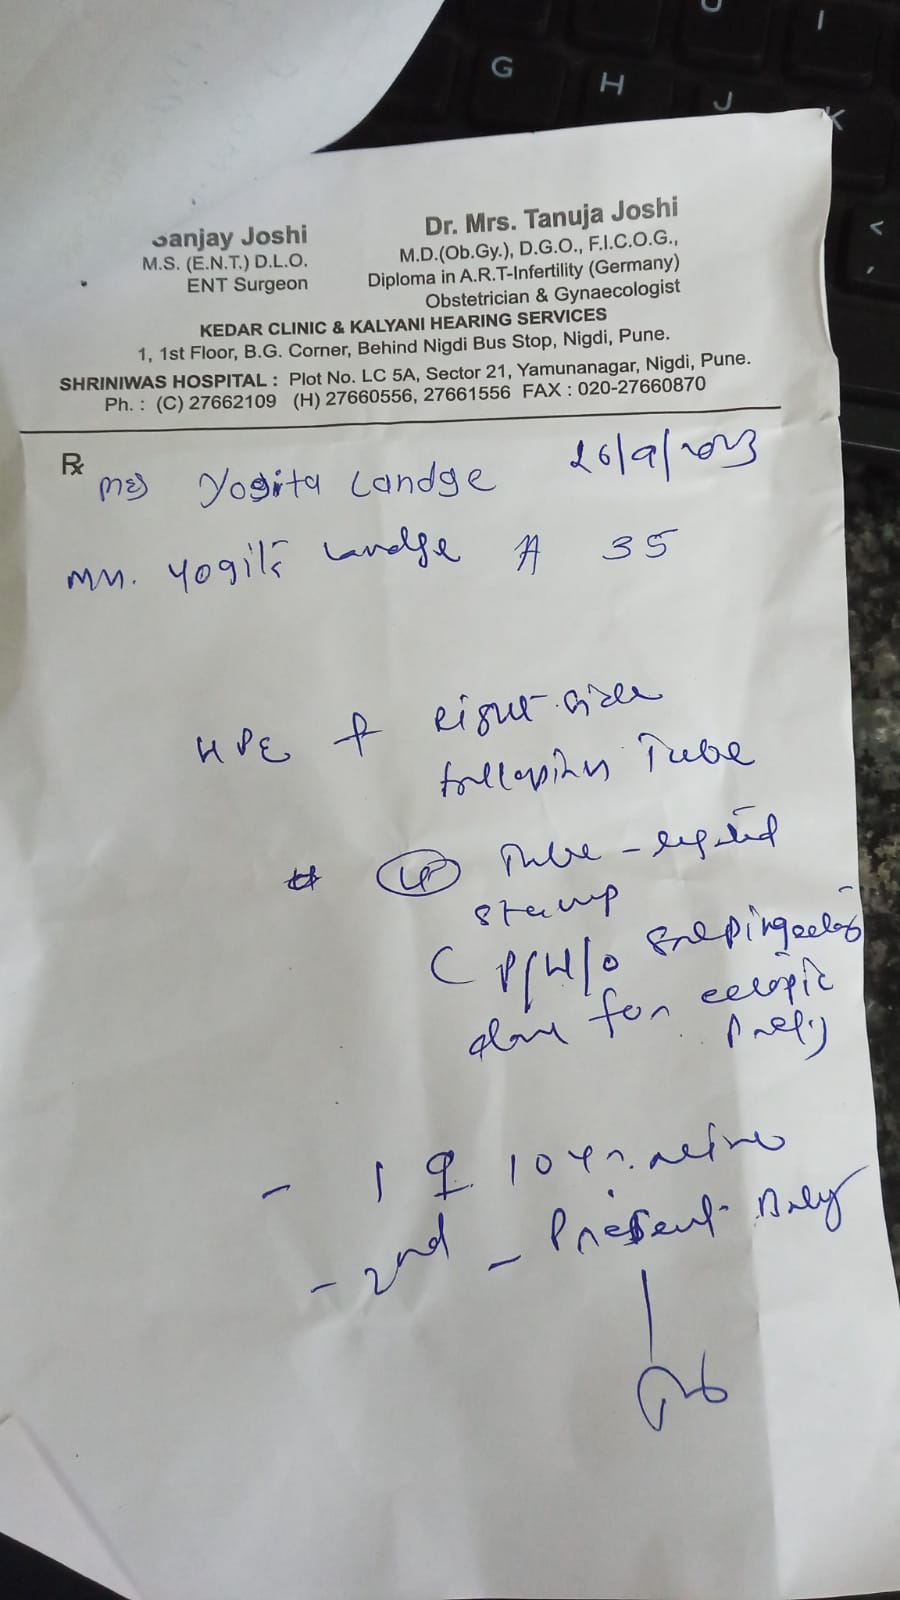 Sanjay Joshi
M.S. (E.N.T.) D.L.O.
ENT Surgeon
Dr. Mrs. Tanuja Joshi
M.D.(Ob.Gy.), D.G.O., F.I.C.O.G.,
Diploma in A.R.T-Infertility (Germany)
Obstetrician & Gynaecologist
KEDAR CLINIC & KALYANI HEARING SERVICES
1, 1st Floor, B.G. Corner, Behind Nigdi Bus Stop, Nigdi, Pune.
SHRINIWAS HOSPITAL : Plot No. LC 5A, Sector 21, Yamunanagar, Nigdi, Pune.
Ph. : (C) 27662109 (H) 27660556, 27661556 FAX : 020-27660870
Rx
Yogita Landge 26/9/2023
Yogita Landge 35
HPE right side
fallopian Tube
Tube -
stump
( P/H/o
done for ectopic
- 1 ♀ 10 yr.
- 2nd - Present
G
H
J
K
I
<
,